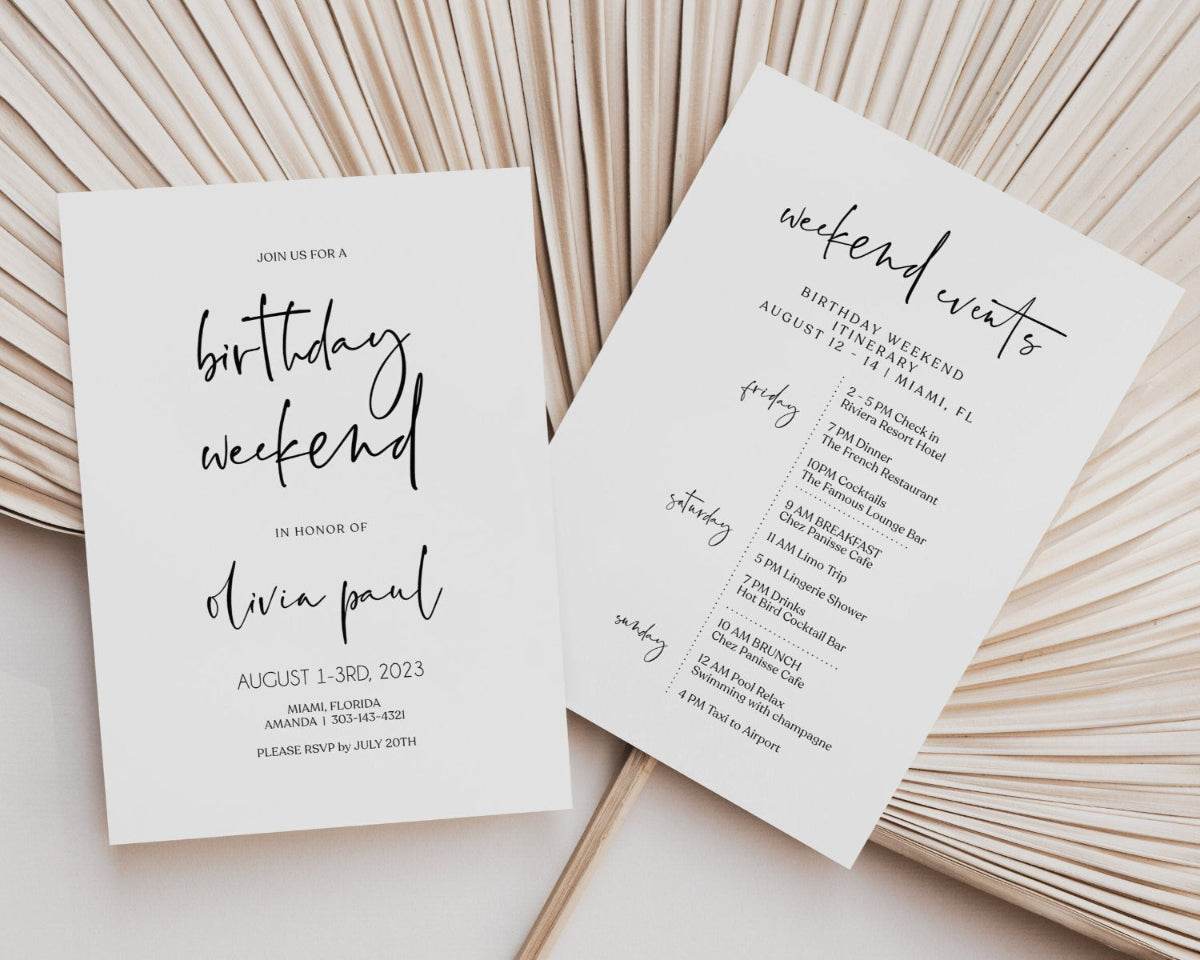 JOIN US FOR A
birthday
weekend
IN HONOR OF
olivia paul
AUGUST 1-3RD, 2023
MIAMI, FLORIDA
AMANDA | 303-143-4321
PLEASE RSVP by JULY 20TH
weekend events
BIRTHDAY WEEKEND
ITINERARY
AUGUST 12 - 14 | MIAMI, FL
friday
2 - 5 PM Check in
Riviera Resort Hotel
7 PM Dinner
The French Restaurant
10PM Cocktails
The Famous Lounge Bar
saturday
9 AM BREAKFAST
Chez Panisse Cafe
11 AM Limo Trip
5 PM Lingerie Shower
7 PM Drinks
Hot Bird Cocktail Bar
sunday
10 AM BRUNCH
Chez Panisse Cafe
12 AM Pool Relax
Swimming with champagne
4 PM Taxi to Airport